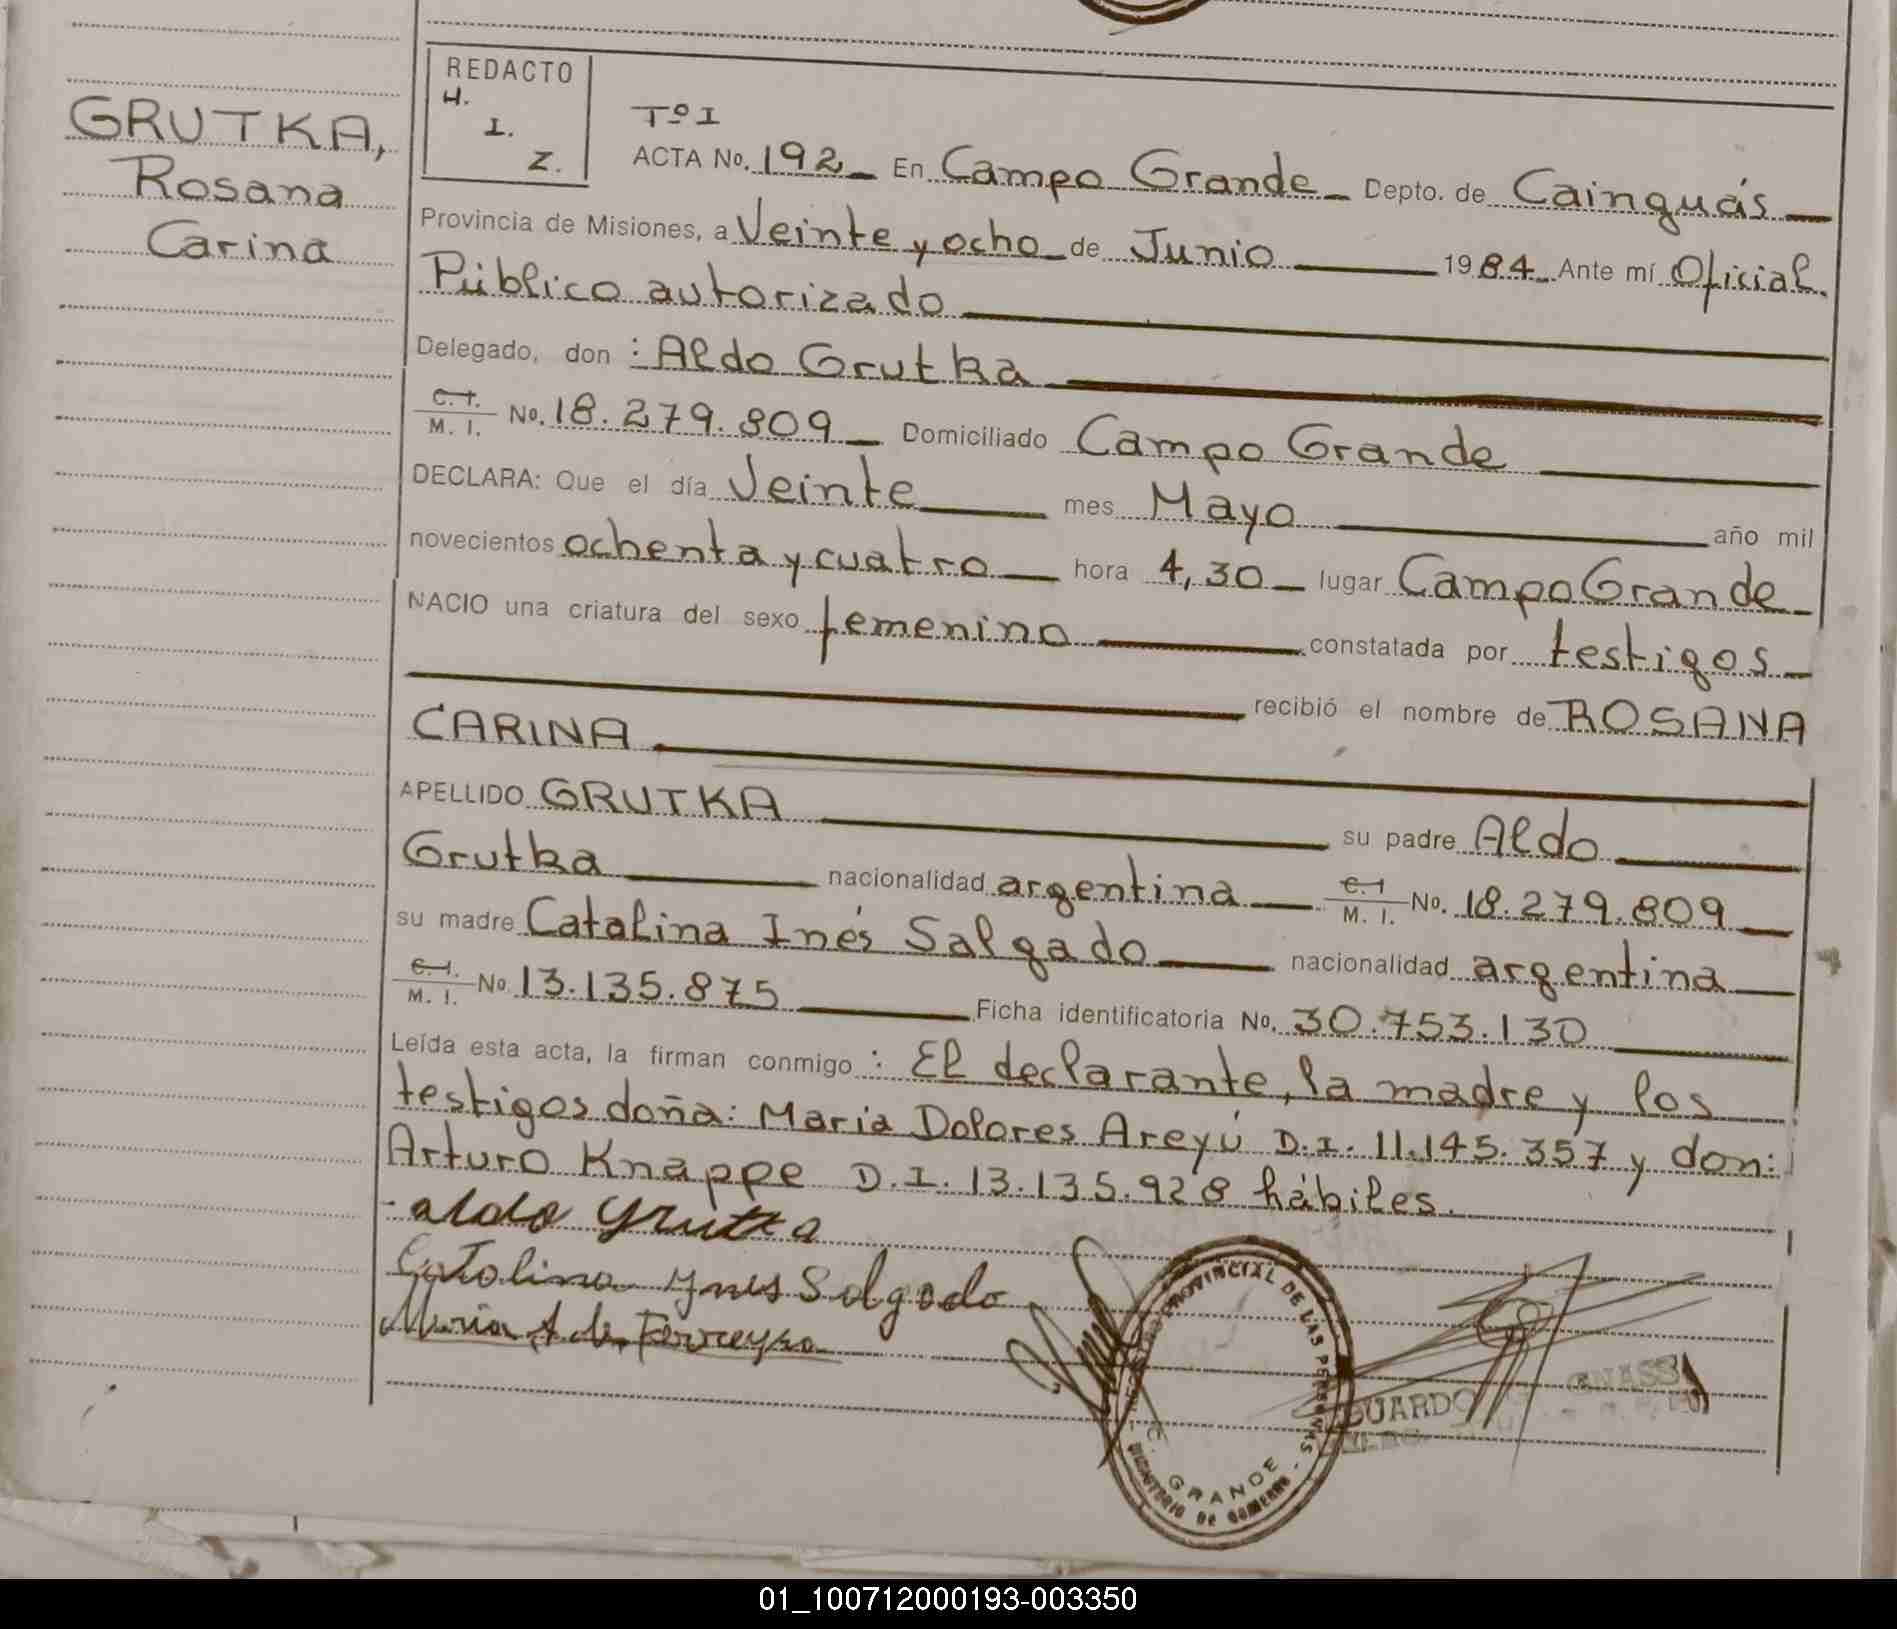 GRUTKA,
Rosana
Carina
REDACTO
H.
I.
Z.
Tº I
ACTA No. 192 En Campo Grande Depto. de Cainguás
Provincia de Misiones, a Veinte y ocho de Junio 1984 Ante mí Oficial
Público autorizado
Delegado, don : Aldo Grutka
C. I. / M. I. No. 18.279.809 Domiciliado Campo Grande
DECLARA: Que el día Veinte mes Mayo año mil
novecientos ochenta y cuatro hora 4,30 lugar Campo Grande
NACIO una criatura del sexo femenino constatada por testigos
recibió el nombre de ROSANA
CARINA
APELLIDO GRUTKA su padre Aldo
Grutka nacionalidad argentina C. I. / M. I. No. 18.279.809
su madre Catalina Inés Salgado nacionalidad argentina
C. I. / M. I. No 13.135.875 Ficha identificatoria No. 30.753.130
Leída esta acta, la firman conmigo : El declarante, la madre y los
testigos doña: María Dolores Areyú D.I. 11.145.357 y don:
Arturo Knappe D.I. 13.135.928 hábiles.
aldo grutka
Catalina Ynes Salgado
Maria A de Ferreyra
PROVINCIAL DE LAS PERSONAS
C. GRANDE
MINISTERIO DE GOBIERNO
01_100712000193-003350